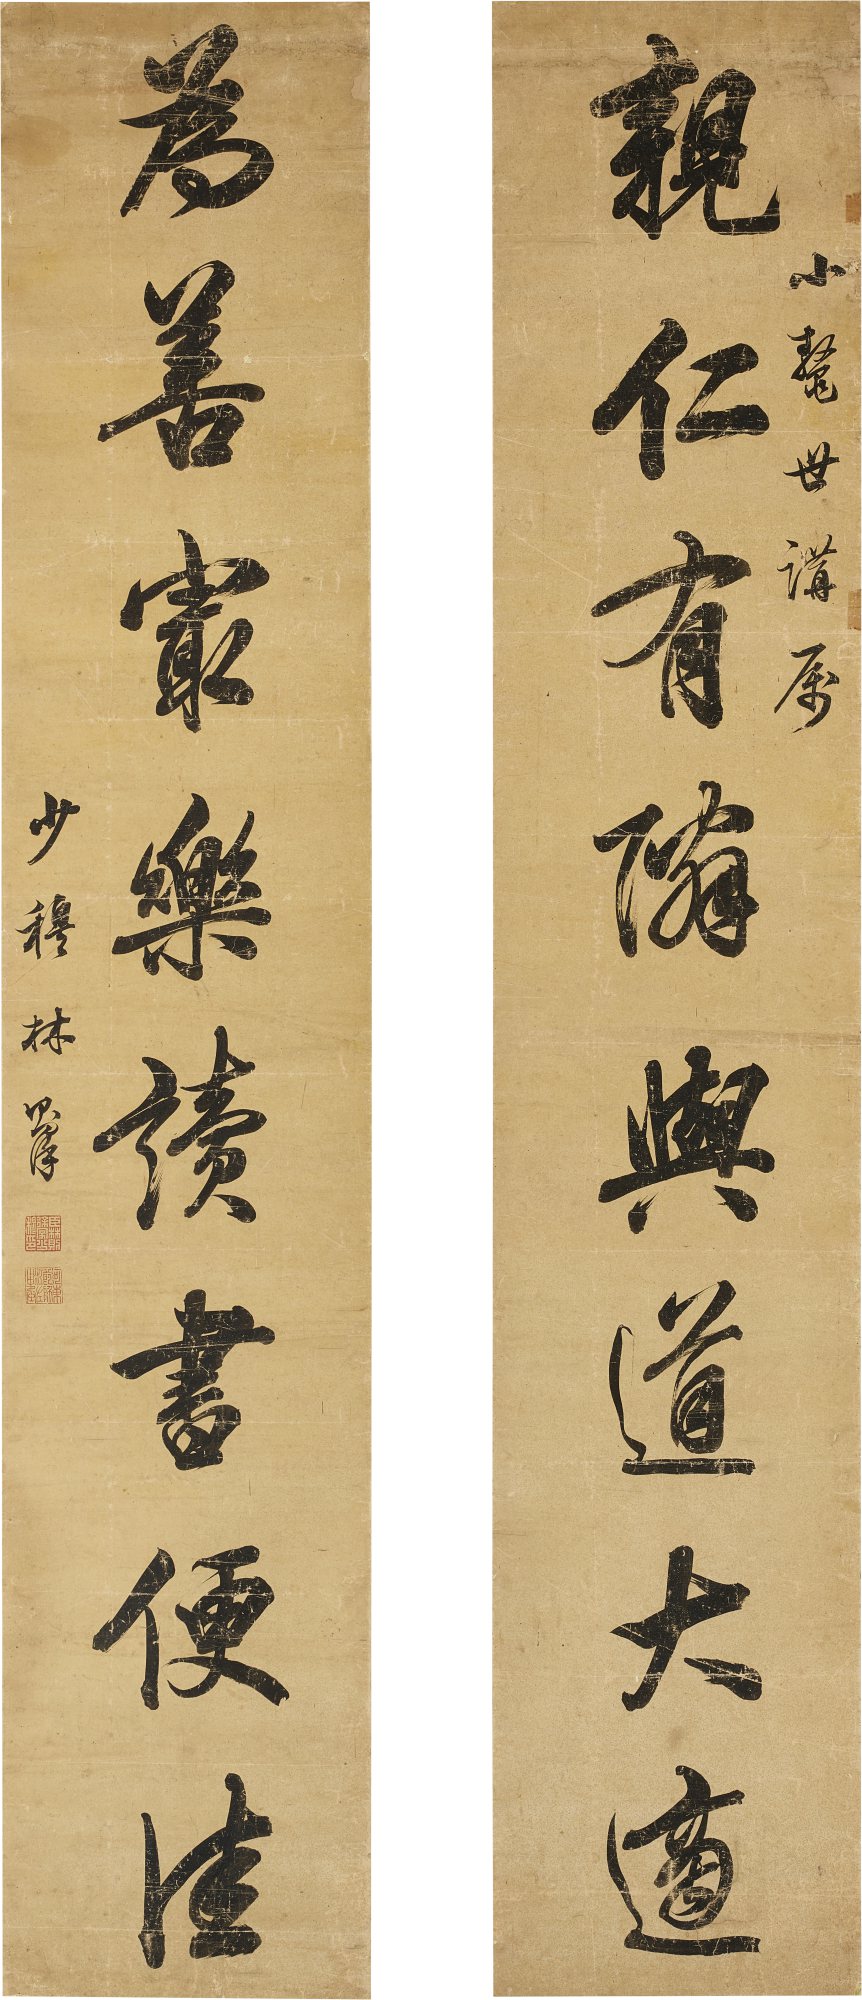 親仁有隣與道大適
小鼇世講屬
為善冣樂讀書便佳
少穆林則徐